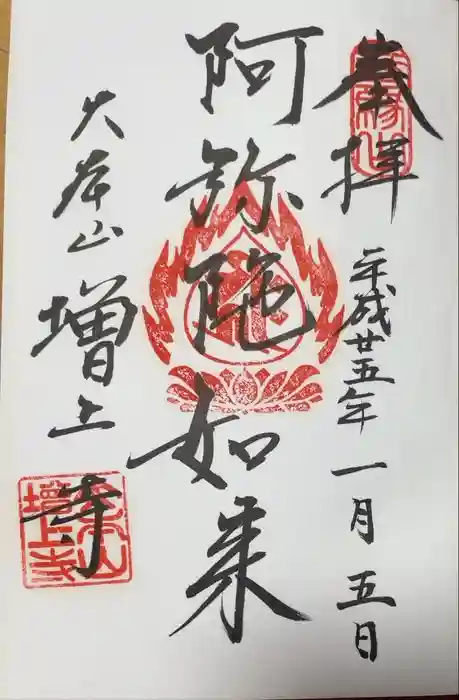 奉拝
平成廿五年一月五日
阿弥陁如来
大本山
増上寺